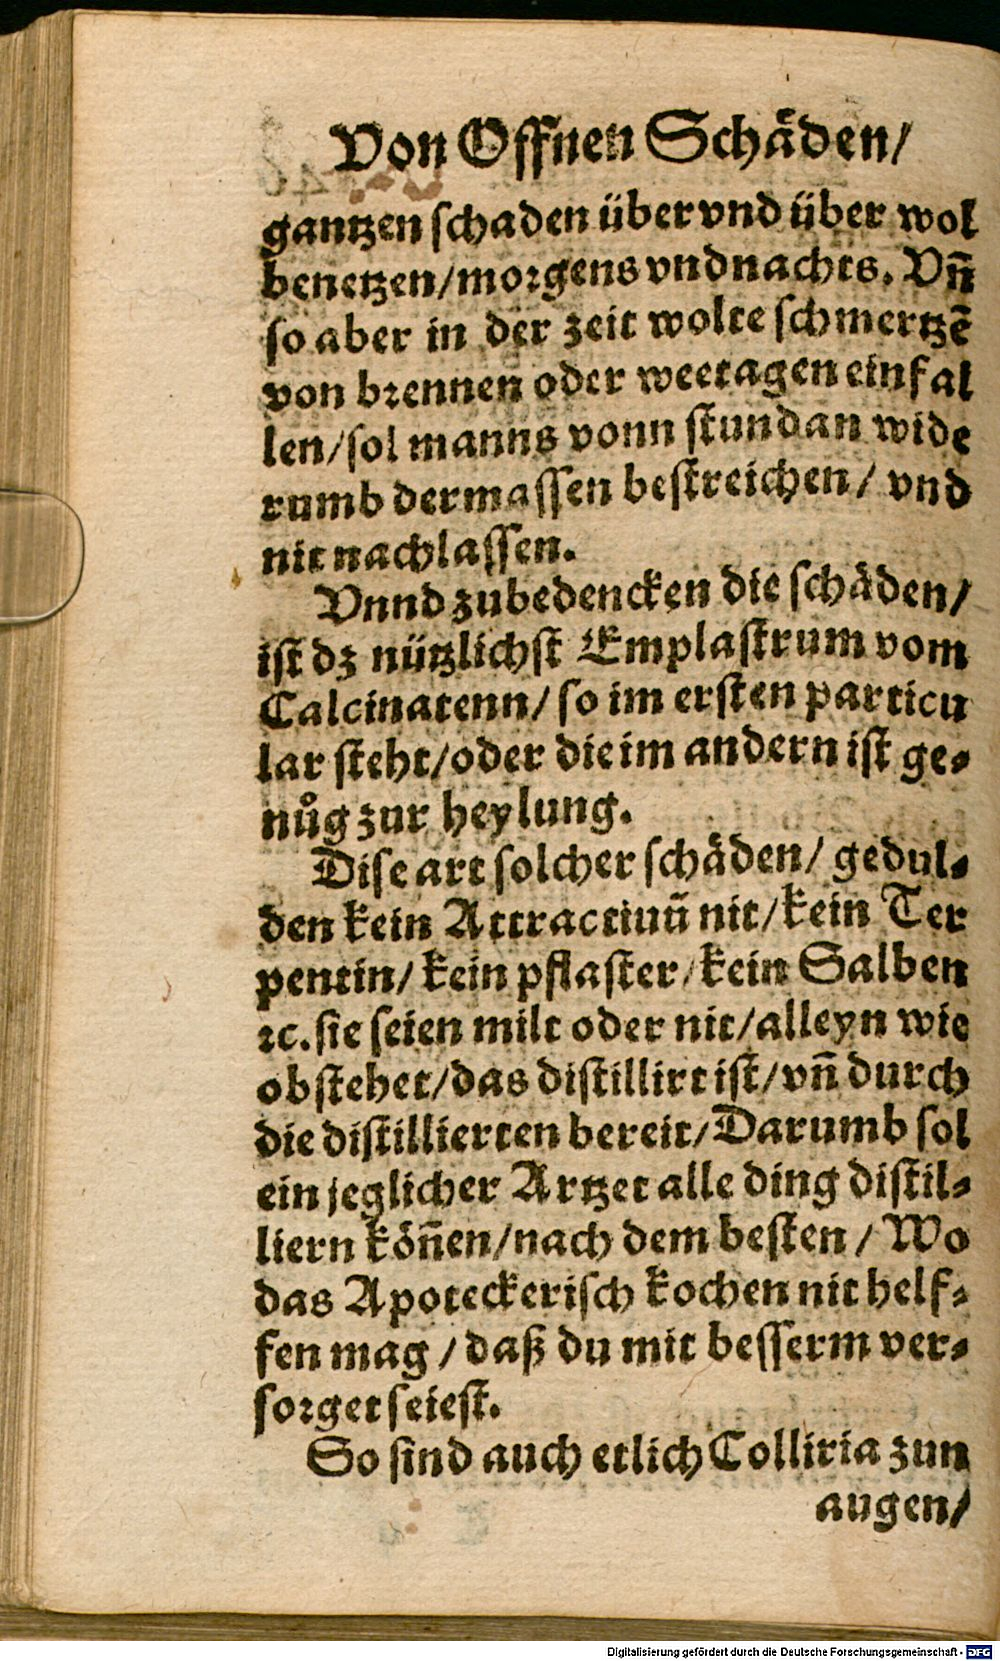 Von Offnen Schäden/
gantzen schaden über vnd über wol
benetzen/morgens vnd nachts. Vñ
so aber in der zeit wolte schmertzẽ
von brennen oder weetagen einfal
len/sol manns vonn stund an wide
rumb dermassen bestreichen/ vnd
nit nachlassen.
Vnnd zubedencken die schäden/
ist dz nützlichst Emplastrum vom
Calcinatenn/ so im ersten particu
lar steht/oder die im andern ist ge-
nůg zur heylung.
Dise art solcher schäden/ gedul-
den kein Attractiuũ nit/kein Ter
pentin/ kein pflaster/kein Salben
ꝛc. sie seien milt oder nit/alleyn wie
obstehet/das distillirt ist/vñ durch
die distillierten bereit/Darumb sol
ein jeglicher Artzet alle ding distil-
liern köñen/nach dem besten / Wo
das Apoteckerisch kochen nit helf-
fen mag / daß du mit besserm ver-
sorget seiest.
So sind auch etlich Colliria zun
augen/
Digitalisierung gefördert durch die Deutsche Forschungsgemeinschaft - DFG